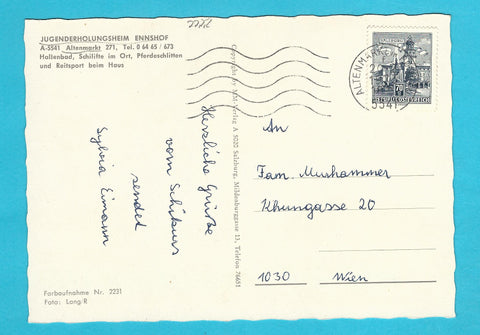 JUGENDERHOLUNGSHEIM ENNSHOF
A-5541 Altenmarkt 271, Tel. 0 64 65 / 673
Hallenbad, Schilifte im Ort, Pferdeschlitten
und Reitsport beim Haus
Herzliche Grüße
vom Schikurs
sendet
Sylvia Eimann
Farbaufnahme Nr. 2231
Foto: Lang/R
Verlag A 5020 Salzburg, Mildenburggasse 13, Telefon 76651
ALTENMARKT
5541
REPUBLIK ÖSTERREICH
An
Fam. Murhammer
Khungasse 20
1030 Wien